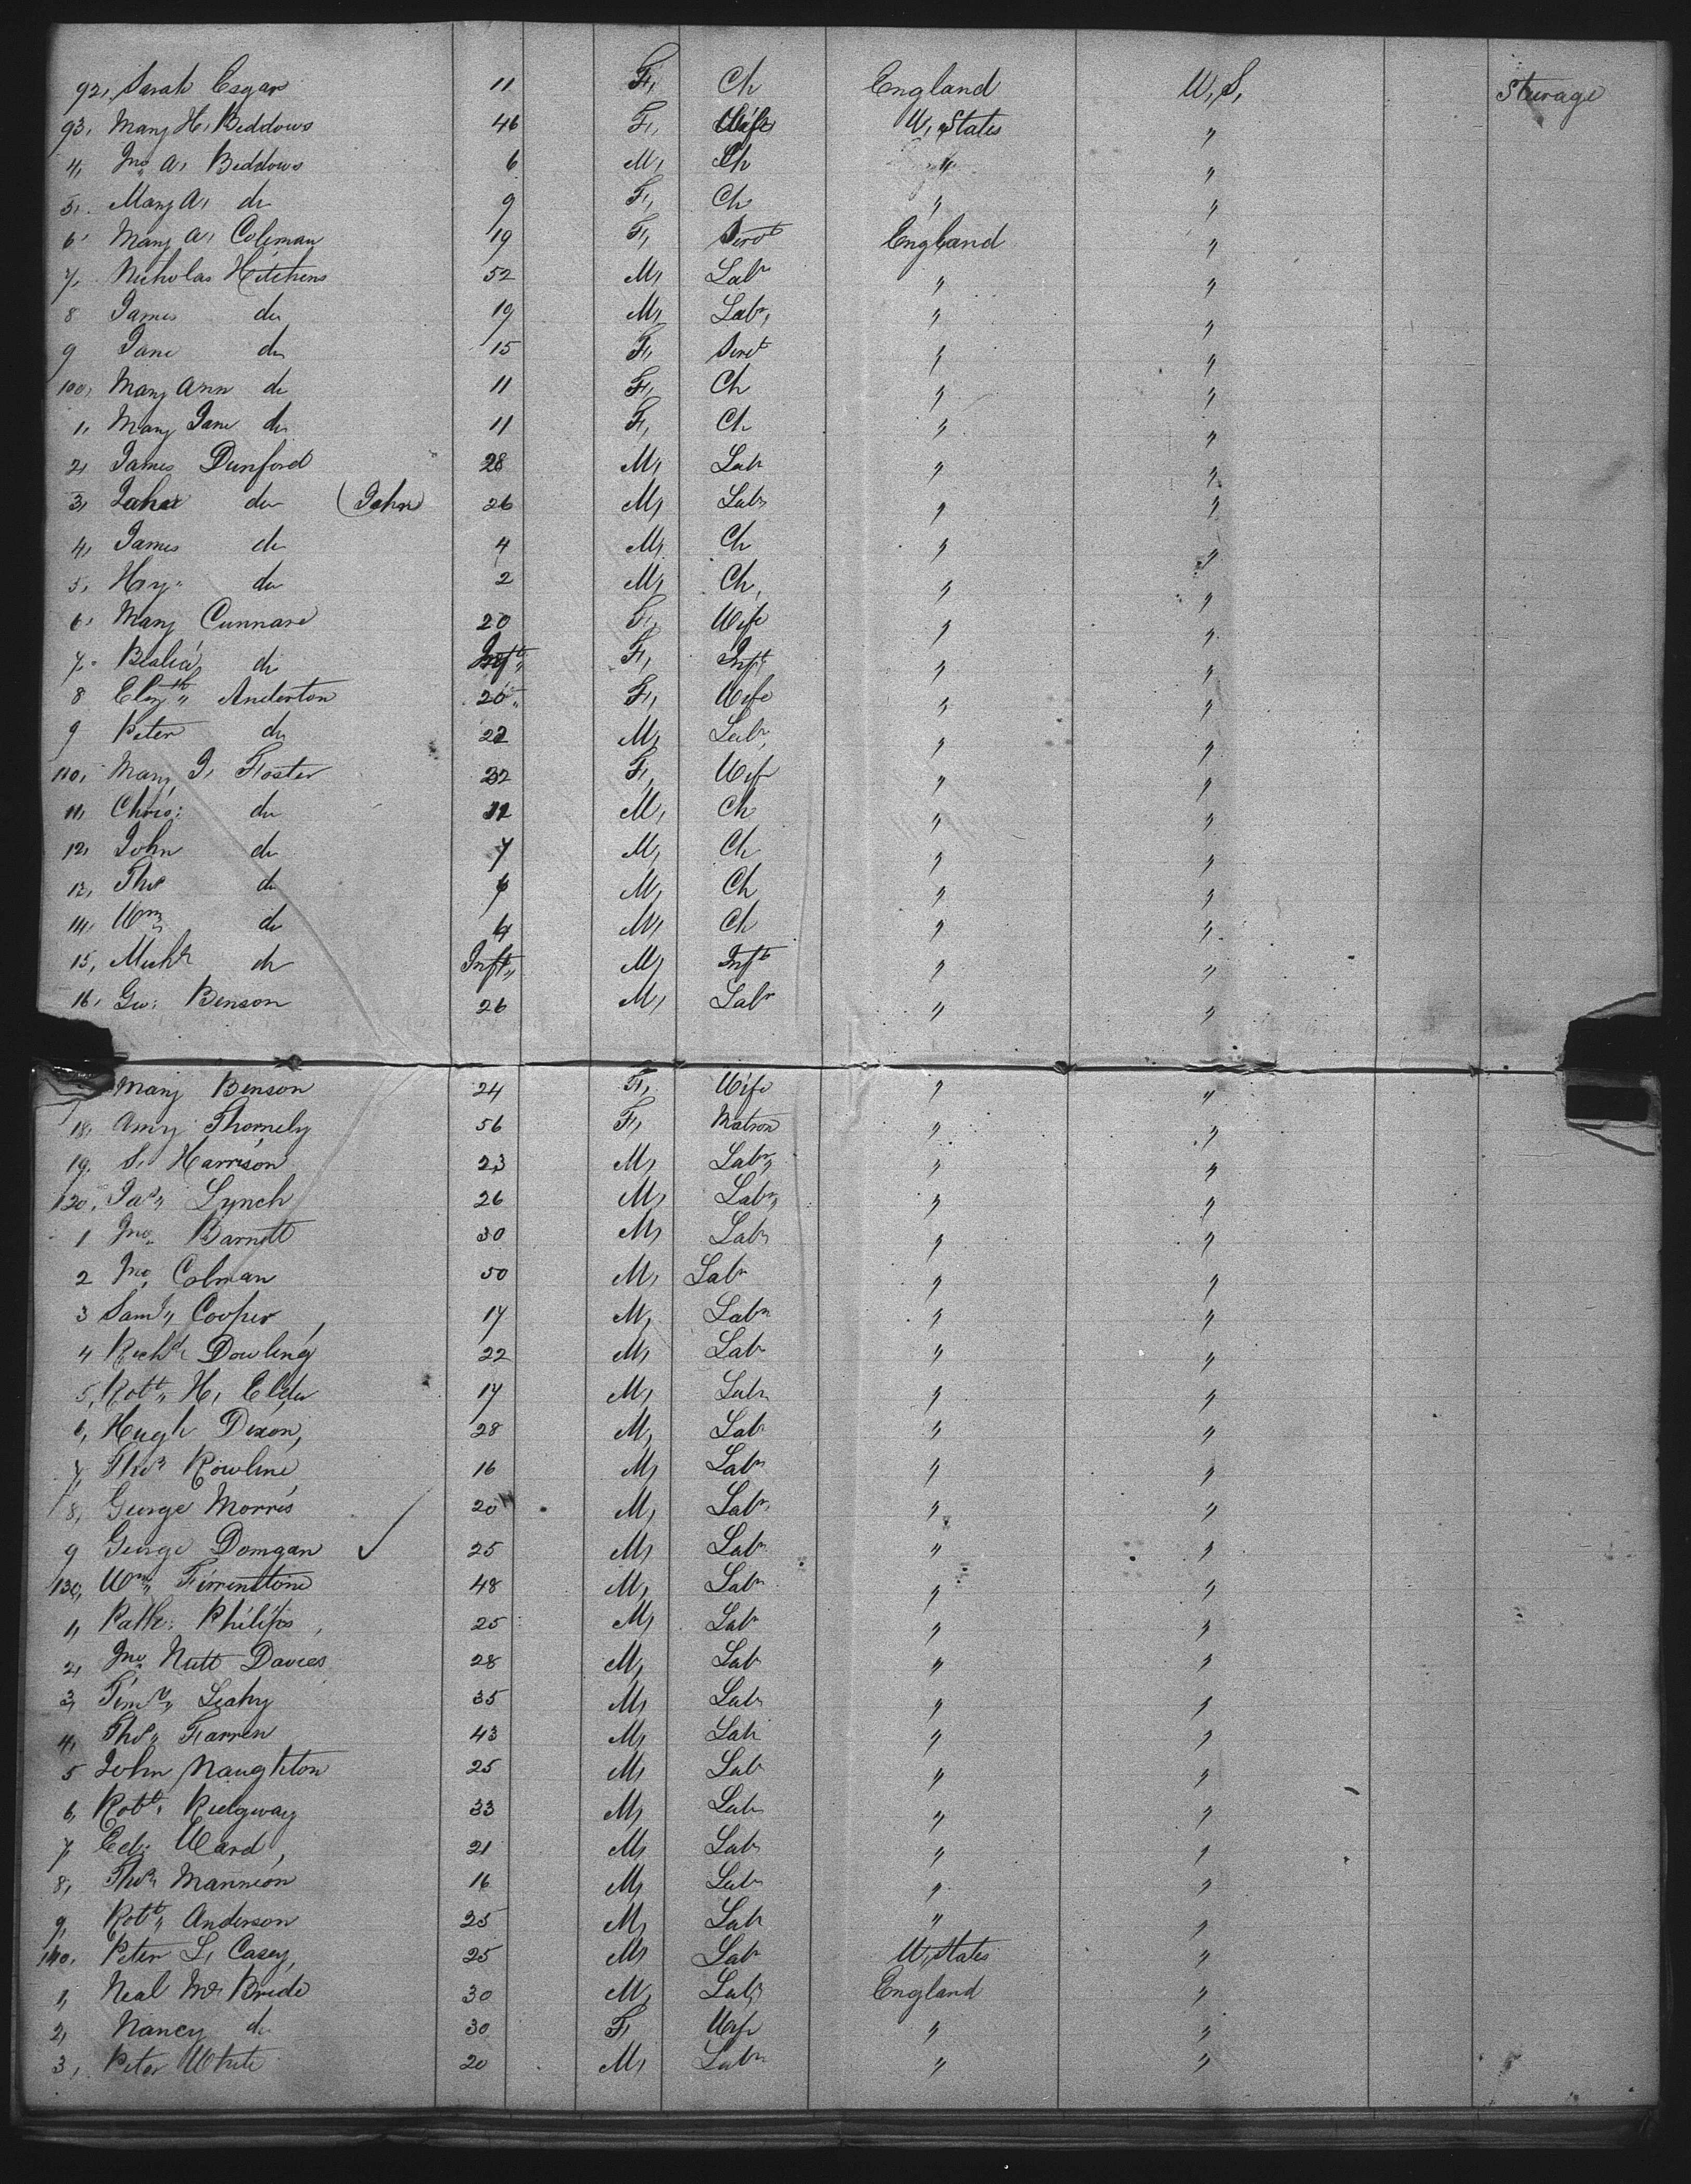 92, Sarah Esgar 11 F, Ch England U, S, Steerage
93, Mary H, Beddows 46 F, Wife U, States "
4, Jno A, Beddows 6 M, Ch " "
5, Mary A, do 9 F, Ch " "
6 Mary A, Coleman 19 F, Servt England "
7, Nicholas Hitchens 52 M, Labr " "
8 James do 19 M, Labr, " "
9 Jane do 15 F, Servt " "
100, Mary Ann do 11 F, Ch " "
1, Mary Jane do 11 F, Ch " "
2, James Dunford 28 M, Labr " "
3, do (John) 26 M, Labr " "
4, James do 4 M, Ch " "
5, Hry do 2 M, Ch, " "
6, Mary Cunnare 20 F, Wife " "
7, do Inft " F, Inft " "
8 Elizth " Anderton 20 F, Wife " "
9 Peter do 22 M, Labr, " "
110, Mary J, Foster 32 F, Wife " "
11, Chris: do M, Ch " "
12, John do 7 M, Ch " "
13, Thos do M, Ch " "
14, Wm do 4 M, Ch " "
15, Michl do Inft " M, Inft " "
16, Geo: Benson 26 M, Labr " "
Mary Benson 24 F, Wife " "
18, Amy Thornely 56 F, Matron " "
19, S, Harrison 23 M, Labr " "
120, Jas " Lynch 26 M, Labr " "
1 Jno Barnett 30 M, Labr " "
2 Jno, Colman 50 M, Labr " "
3 Saml " Cooper, 17 M, Labr " "
4 Richd Dowling 22 M, Labr " "
5, Robt " H, Elder 17 M, Labr " "
6, Hugh Dixon, 28 M, Labr " "
7, Thos Rowline 16 M, Labr " "
8, George Morris 20 M, Labr " "
9 George Domgan ✓ 25 M, Labr " "
130, Wm " Firrenstone 48 M, Labr " "
1, Patk: Philips, 25 M, Labr " "
2, Jno Nutt Davies 28 M, Labr " "
3, Timy " Leahy 35 M, Labr " "
4, Thos " Farren 43 M, Labr " "
5 John Naughton 25 M, Labr " "
6, Robt, Ridgway 33 M, Labr " "
7, Ed: Ward, 21 M, Labr " "
8, Thos Mannion 16 M, Labr " "
9, Robt " Anderson 25 M, Labr " "
140, Peter L, Casey, 25 M, Labr U, States "
1, Neal Mc Bride 30 M, Labr England "
2, Nancy do 30 F, Wife " "
3, Peter White 20 M, Labr " "